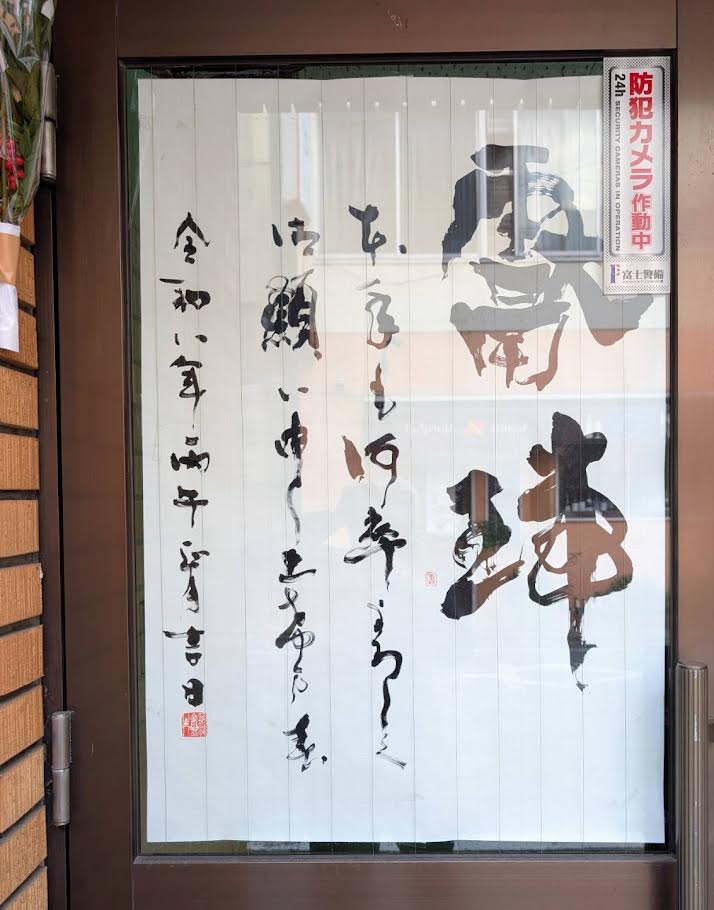 防犯カメラ作動中
24h SECURITY CAMERAS IN OPERATION
富士警備
本年も何卒よろしく
御願い申し上げます
令和八年丙午正月吉日